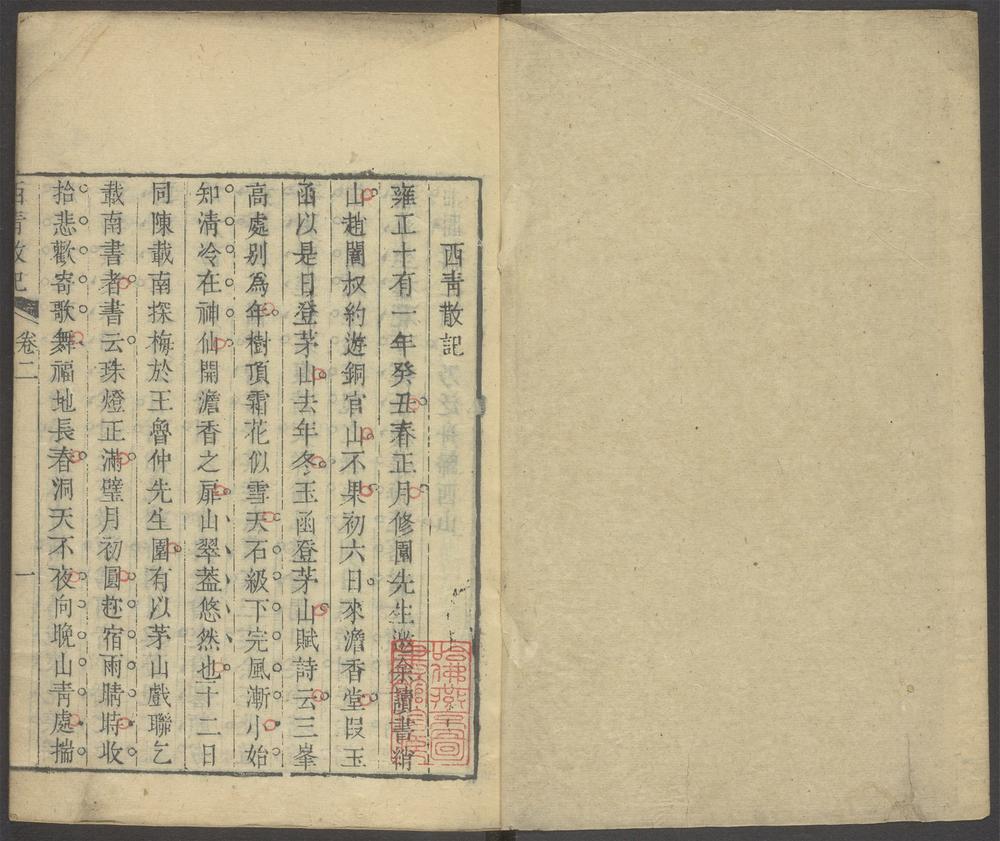 西青散記
雍正十有一年癸丑春正月修園先生邀余讀書綃
山趙闇叔約遊銅官山不果初六日來澹香堂段玉
函以是日登茅山去年冬玉函登茅山賦詩云三峯
高處別為年樹頂霜花似雪天石級下完風漸小始
知清冷在神仙開澹香之扉山翠葢悠然也十二日
同陳載南探梅於王魯仲先生園有以茅山戲聯乞
載南書者書云珠燈正滿璧月初圓趂宿雨晴時收
拾悲歡寄歌舞福地長春洞天不夜向晚山青處揣
西青散記
卷二
一
哈佛燕京圖